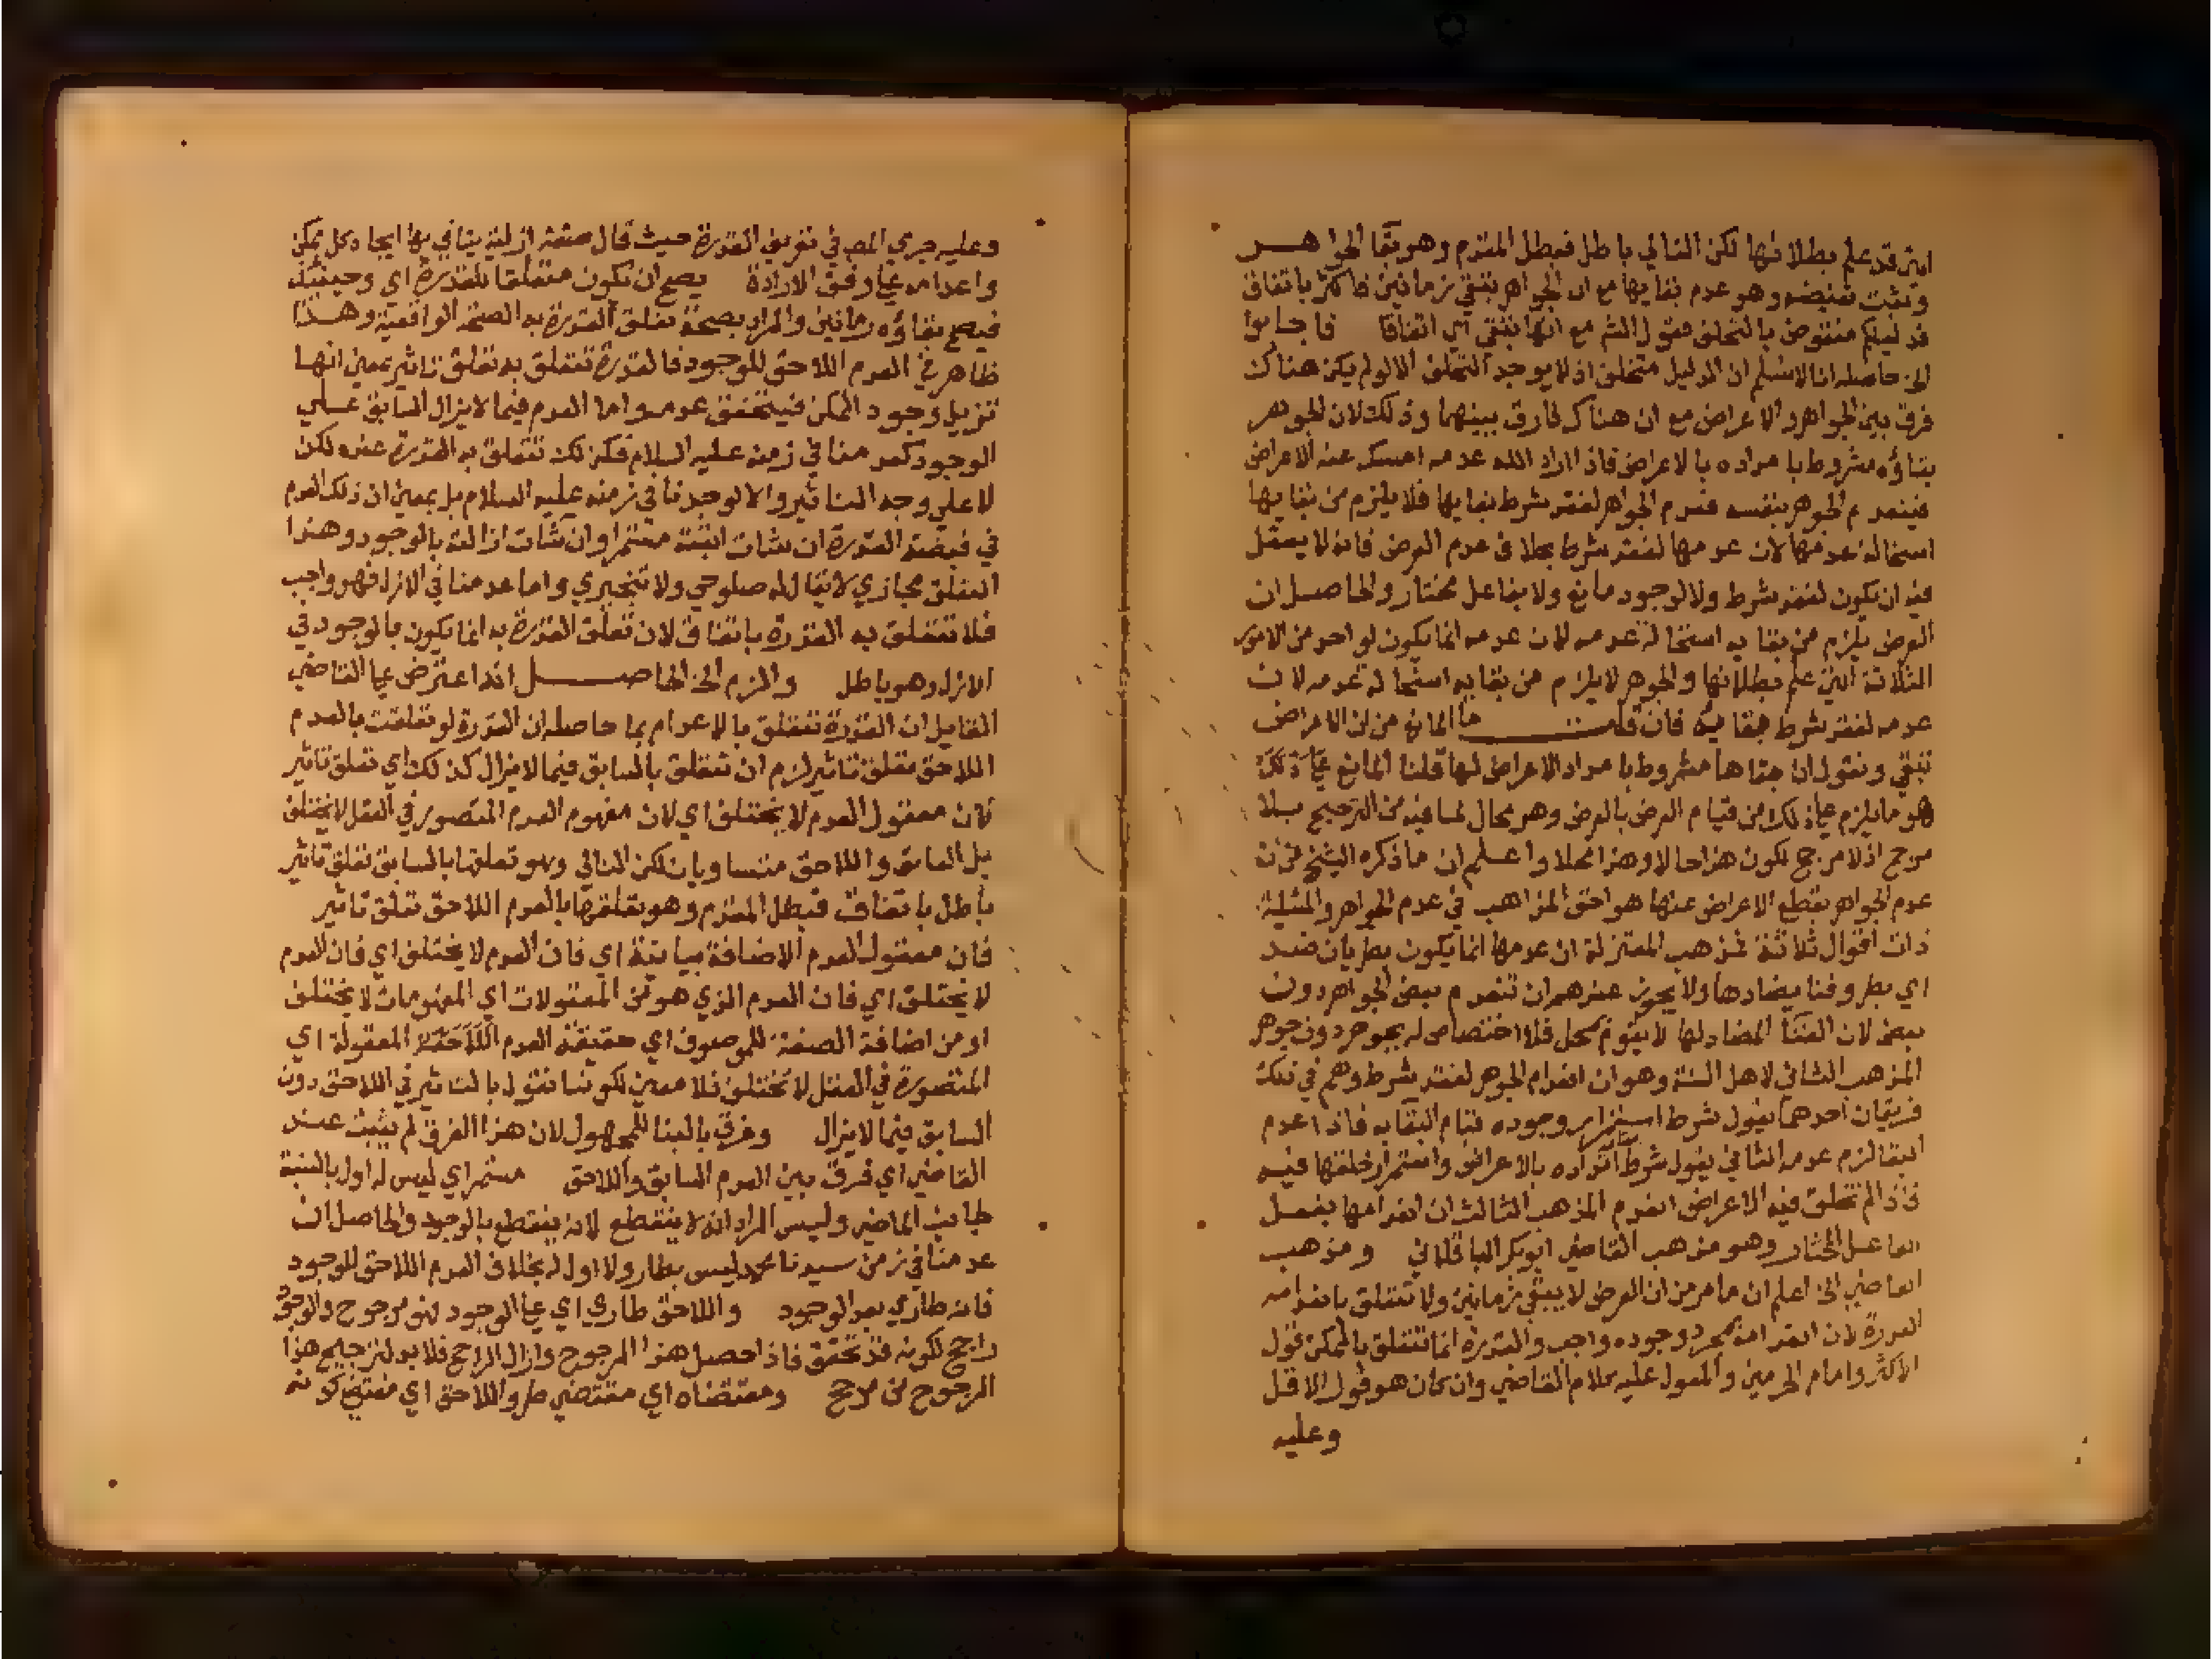 التي قد علم بطلانها لكن التالي باطل فبطل المقدم وهو بقا الجواهر
وثبت نقيضه وهو عدم بقايها مع ان الجواهر تبقي زمانين فاكثر باتفاق
فدليلكم منقوض بالتخلف فقول الشم مع انها تبقي اي اتفاقا فاجابوا
الخ حاصله انا لا نسلم ان الدليل متخلف اذ لا يوجد التخلف الا لو لم يكن هناك
فرق بين الجواهر والاعراض مع ان هناك فارق بينهما وذلك لان الجوهر
بقاؤه مشروط بامداده بالاعراض فاذا اراد الله عدمه امسك عنه الاعراض
فينعدم الجوهر بنفسه فعدم الجواهر لفقد شرط بقايها فلا يلزم من بقايها
استحالة عدمها لان عدمها لفقد شرط بخلاف عدم العرض فانه لا يعقل
فيه ان يكون لفقد شرط ولا لوجود مانع ولا بفاعل مختار والحاصل ان
العرض يلزم من بقايه استحالة عدمه لان عدمه انما يكون لواحد من الامور
الثلاثة التي علم بطلانها والجوهر لا يلزم من بقايه استحالة عدمه لان
عدمه لفقد شرط بقايه فان قلت ما المانع من ان الاعراض
تبقي ونقول ان بقاها مشروط بامداد الاعراض لها قلنا المانع علي ذلك
هو ما يلزم علي ذلك من قيام العرض بالعرض وهو محال لما فيه من الترجيح بلا
مرجح اذ لا مرجح لكون هذا حالا وهذا محلا واعلم ان ما ذكره الشيخ من ان
عدم الجواهر بقطع الاعراض عنها هو احق المذاهب في عدم الجواهر والمسئلة
ذات اقوال ثلاثة فمذهب المعتزلة ان عدمها انما يكون بطريان ضد
اي بطرو فنا يضادها ولا يجوز عندهم ان تنعدم بعض الجواهر دون
بعض لان الفنا المضاد لها لا يقوم بمحل فلا اختصاص له بجوهر دون جوهر
المذهب الثاني لاهل السنة وهو ان انعدام الجوهر لفقد شرط وهم في ذلك
فريقان احدهما يقول شرط استمرار وجوده قيام البقا به فاذا عدم
البقا لزم عدمه الثاني يقول شرط امداده بالاعراض واستمرار خلقها فيه
فاذا لم تخلق فيه الاعراض انعدم المذهب الثالث ان انعدامها بفعل
الفاعل المختار وهو مذهب القاضي ابو بكر الباقلاني ومذهب
القاضي الخ اعلم ان ما مر من ان العرض لا يبقي زمانين ولا تتعلق بانعدامه
القدرة لان انعدامه بمجرد وجوده واجب والقدرة انما تتعلق بالممكن قول
الاكثر وامام الحرمين والمعول عليه كلام القاضي وان كان هو قول الاقل
وعليه
وعليه جري المص في تعريف القدرة حيث قال صفة ازلية يتاتي بها ايجاد كل ممكن
واعدامه علي وفق الارادة يصح ان تكون متعلقا للقدرة اي وحينئذ
فيصح بقاؤه زمانين والمراد بصحة تعلق القدرة به الصحة الواقعية وهذا
ظاهر في العدم اللاحق للوجود فالقدرة تتعلق به تعلق تاثير بمعني انها
تزيل وجود الممكن فيتحقق عدمه واما العدم فيما لا يزال السابق علي
الوجود كعدمنا في زمنه عليه السلام فكذلك تتعلق به القدرة عنده لكن
لا علي وجه التاثير والا لوجدنا في زمنه عليه السلام بل بمعني ان ذلك العدم
في قبضة القدرة ان شات ابقته مستمرا وان شات ازالته بالوجود وهذا
التعلق مجازي لا يقال له صلوحي ولا تنجيزي واما عدمنا في الازل فهو واجب
فلا تتعلق به القدرة باتفاق لان تعلق القدرة به انما يكون بالوجود في
الازل وهو باطل والزم الخ الحاصل انه اعترض علي القاضي
القايل ان القدرة تتعلق بالاعدام بما حاصله ان القدرة لو تعلقت بالعدم
اللاحق تعلق تاثير لزم ان تتعلق بالسابق فيما لا يزال كذلك اي تعلق تاثير
لان معقول العدم لا يختلف اي لان مفهوم العدم المتصور في العقل لا يختلف
بل السابق واللاحق متساويان لكن التالي وهو تعلقها بالسابق تعلق تاثير
باطل باتفاق فبطل المقدم وهو تعلقها بالعدم اللاحق تعلق تاثير
فان معقول العدم الاضافة بيانية اي فان العدم لا يختلف اي فان العدم
لا يختلف اي فان العدم الذي هو من المعقولات اي المفهومات لا يختلف
او من اضافة الصفة للموصوف اي حقيقة العدم المعقولة اي
المتصورة في العقل لا تختلف فلا معني لكوننا نقول بالتاثير في اللاحق دون
السابق فيما لا يزال وفرق بالبنا للمجهول لان هذا الفرق لم يثبت عند
القاضي اي فرق بين العدم السابق واللاحق مستمر اي ليس له اول بالنسبة
لجانب الماضي وليس المراد انه لا ينقطع لانه ينقطع بالوجود والحاصل ان
عدمنا في زمن سيدنا محمد ليس بطار ولا اول له بخلاف العدم اللاحق للوجود
فانه طاري بعد الوجود واللاحق طاري اي علي الوجود فهو مرجوح والوجود
راجح لكونه قد تحقق فاذا حصل هذا المرجوح وازال الراجح فلا بد لترجيح هذا
المرجوح من مرجح ومقتضاه اي مقتضي طرو اللاحق اي مقتضي كونه